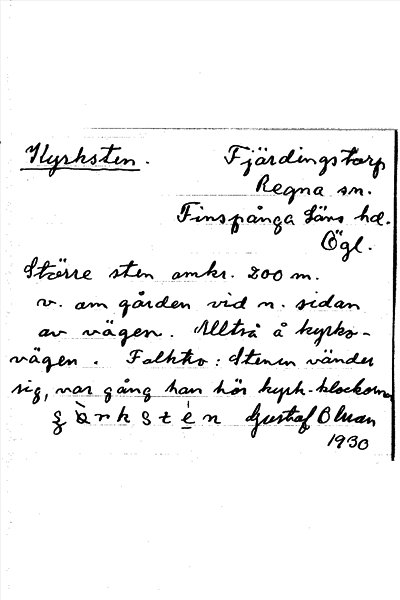 Kyrksten.
Fjärdingstorp
Regna sn.
Finspånga läns hd.
Ögl.
Större sten omkr. 200 m.
v. om gården vid n. sidan
av vägen. Alltså å kyrko-
vägen. Folktro: Stenen vänder
sig, var gång han hör kyrk-klockorna
Gustaf
1930